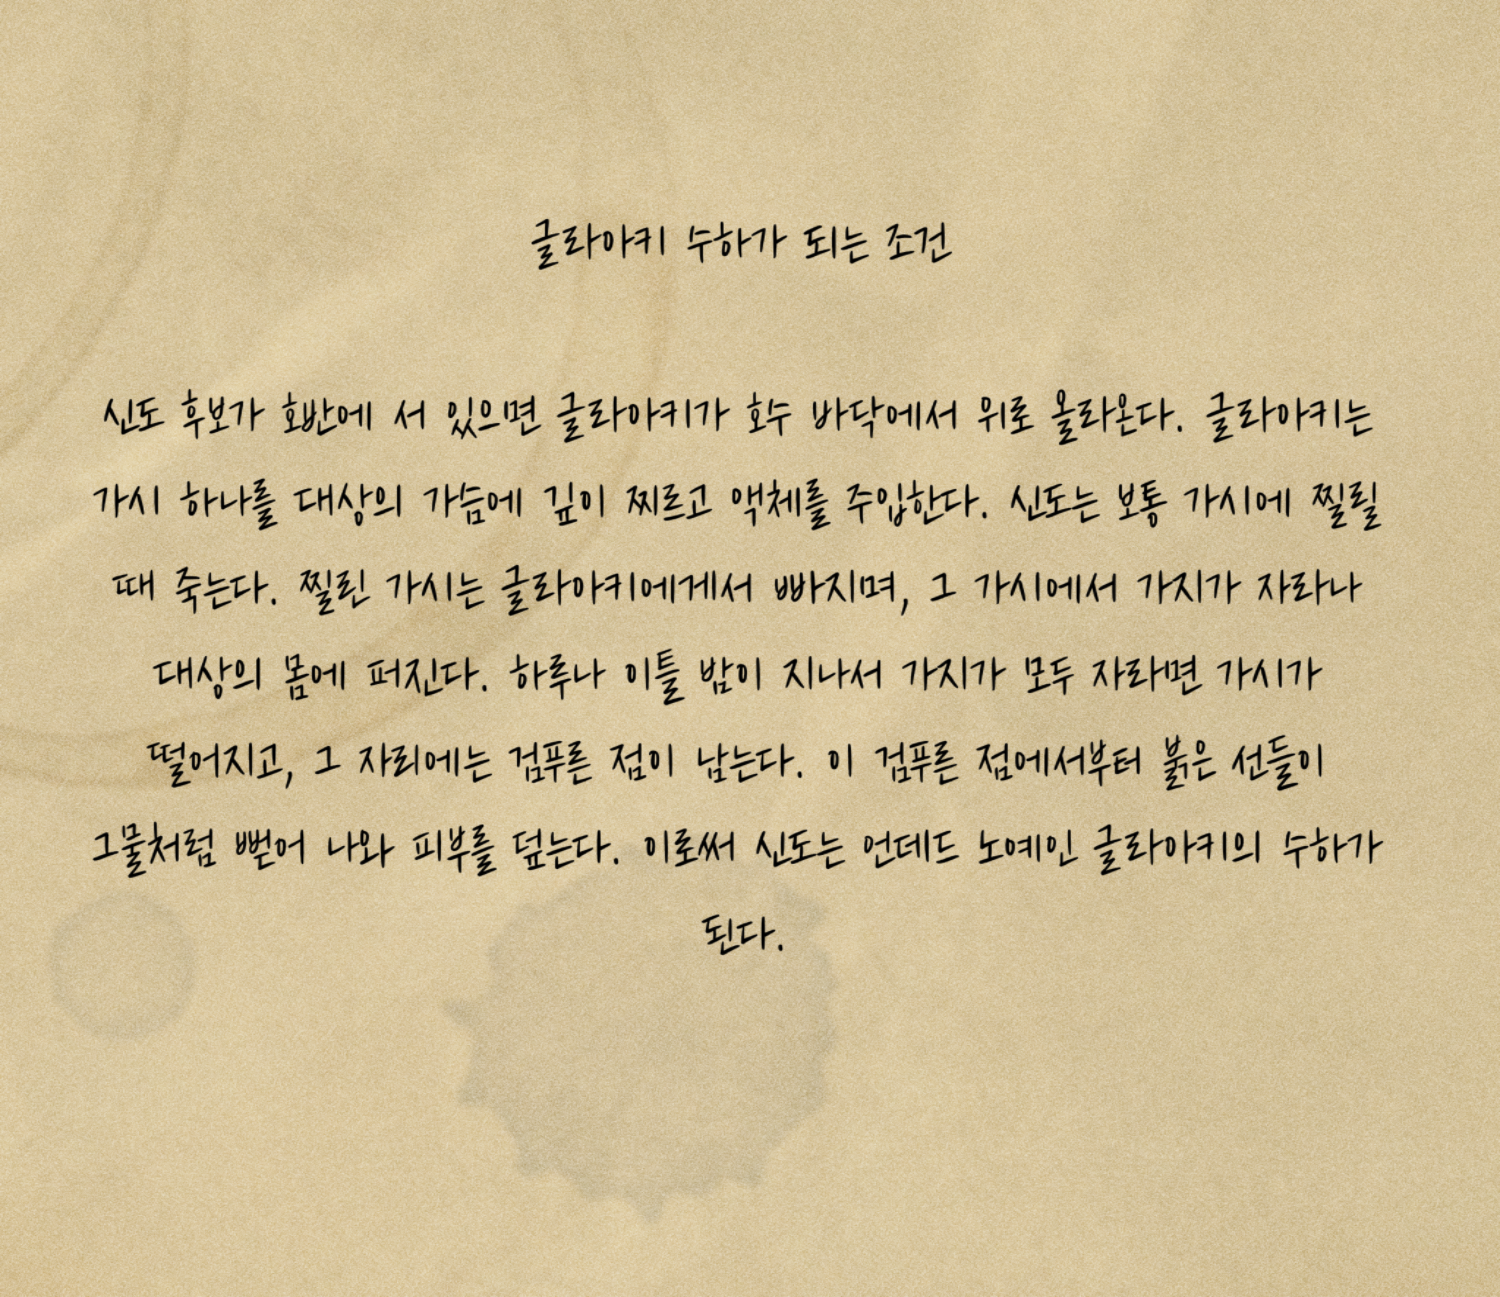 글라아키 수하가 되는 조건
신도 후보가 호반에 서 있으면 글라아키가 호수 바닥에서 위로 올라온다. 글라아키는
가시 하나를 대상의 가슴에 깊이 찌르고 액체를 주입한다. 신도는 보통 가시에 찔릴
때 죽는다. 찔린 가시는 글라아키에게서 빠지며, 그 가시에서 가지가 자라나
대상의 몸에 퍼진다. 하루나 이틀 밤이 지나서 가지가 모두 자라면 가시가
떨어지고, 그 자리에는 검푸른 점이 남는다. 이 검푸른 점에서부터 붉은 선들이
그물처럼 뻗어 나와 피부를 덮는다. 이로써 신도는 언데드 노예인 글라아키의 수하가
된다.